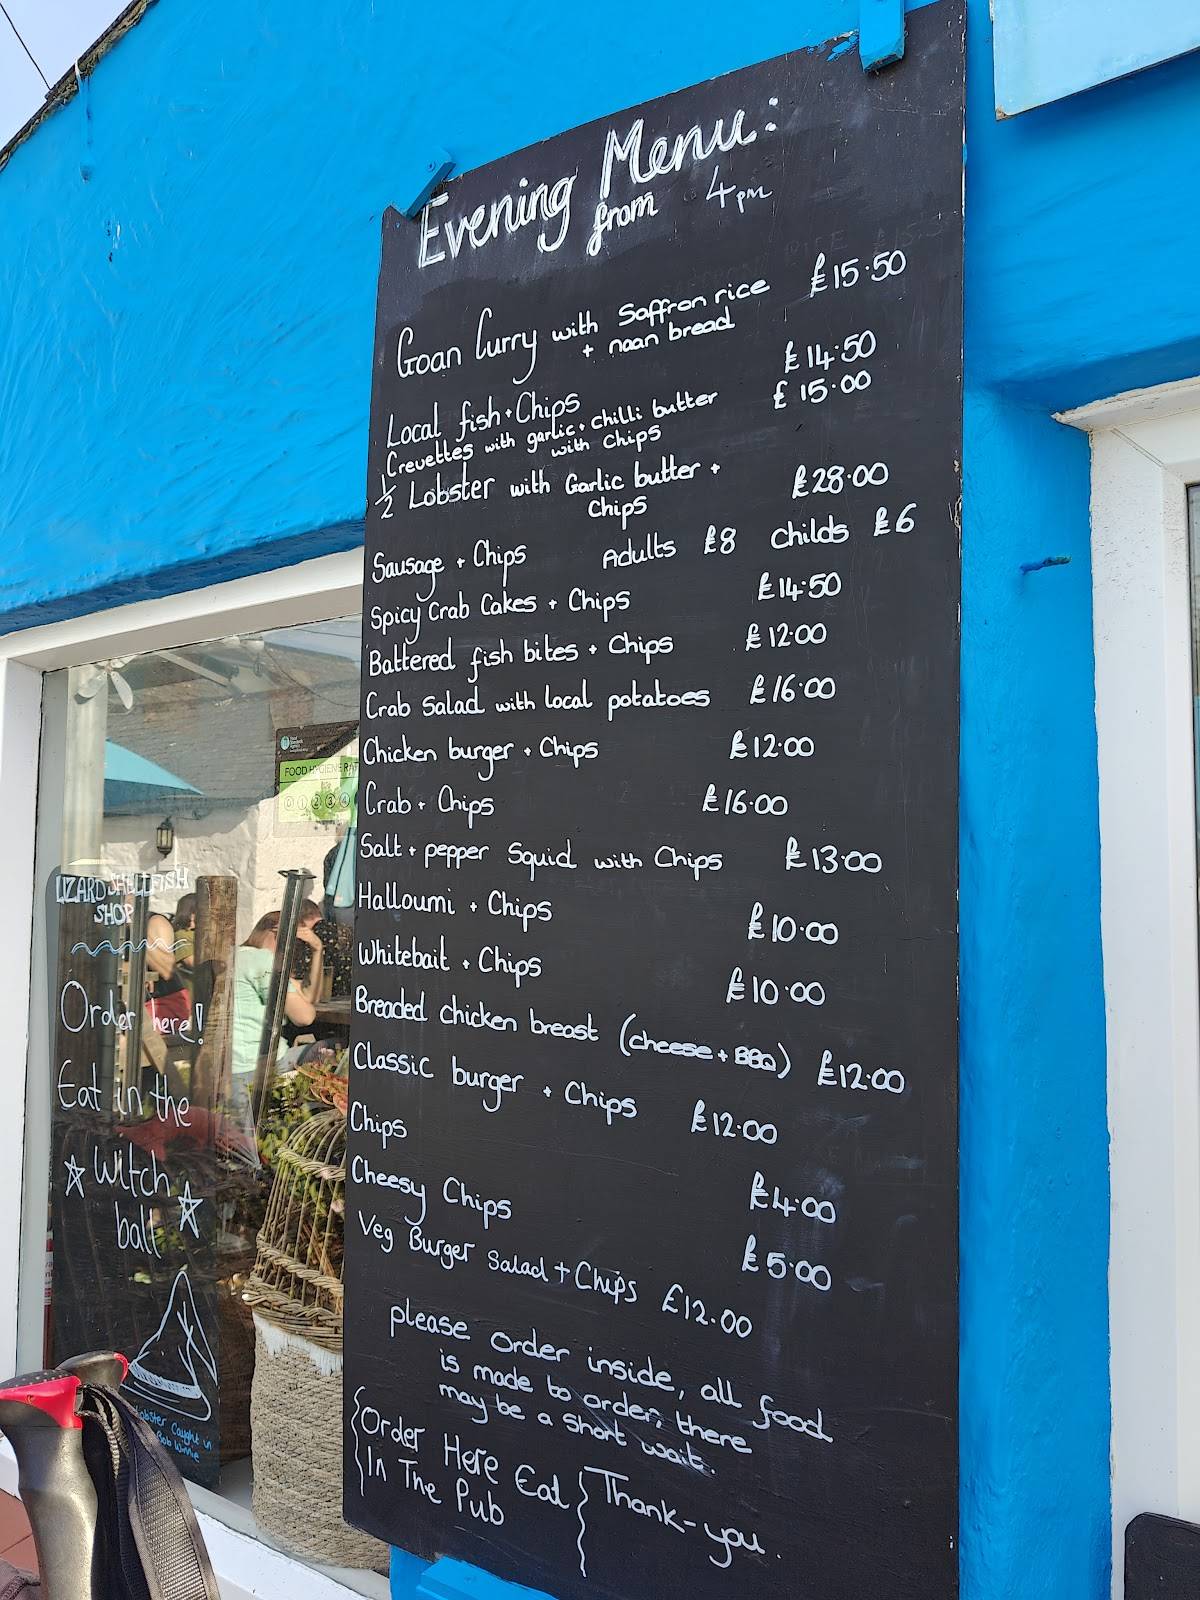 Evening Menu:
from 4pm
Goan Curry with Saffron rice £15.50
+ naan bread
Local fish + Chips £14.50
Crevettes with garlic + chilli butter £15.00
with chips
1/2 Lobster with Garlic butter + £28.00
Chips
Sausage + Chips Adults £8 Childs £6
Spicy Crab Cakes + Chips £14.50
Battered fish bites + Chips £12.00
Crab Salad with local potatoes £16.00
Chicken burger + Chips £12.00
Crab + Chips £16.00
Salt + pepper Squid with Chips £13.00
Halloumi + Chips £10.00
Whitebait + Chips £10.00
Breaded chicken breast (cheese + BBQ) £12.00
Classic burger + Chips £12.00
Chips £4.00
Cheesy Chips £5.00
Veg Burger Salad + Chips £12.00
please order inside, all food
is made to order, there
may be a short wait.
Order Here Eat
In The Pub
Thank-you.
FOOD HYGIENE RAT
0 1 2 3 4
LIZARD SHELLFISH
SHOP
Order here!
Eat in the
Witch
ball
Lobster Caught in